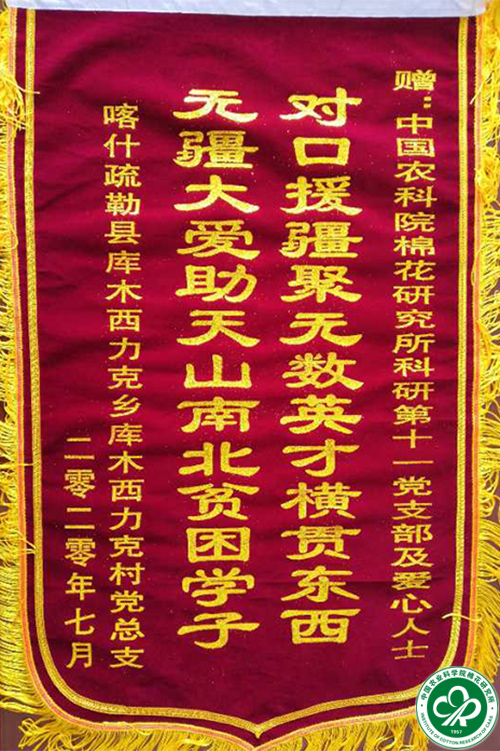 赠:中国农科院棉花研究所科研第十一党支部及爱心人士
对口援疆聚无数英才横贯东西
无疆大爱助天山南北贫困学子
喀什疏勒县库木西力克乡库木西力克村党总支
二零二零年七月
中国农业科学院棉花研究所
1957
INSTITUTE OF COTTON RESEARCH OF CAAS